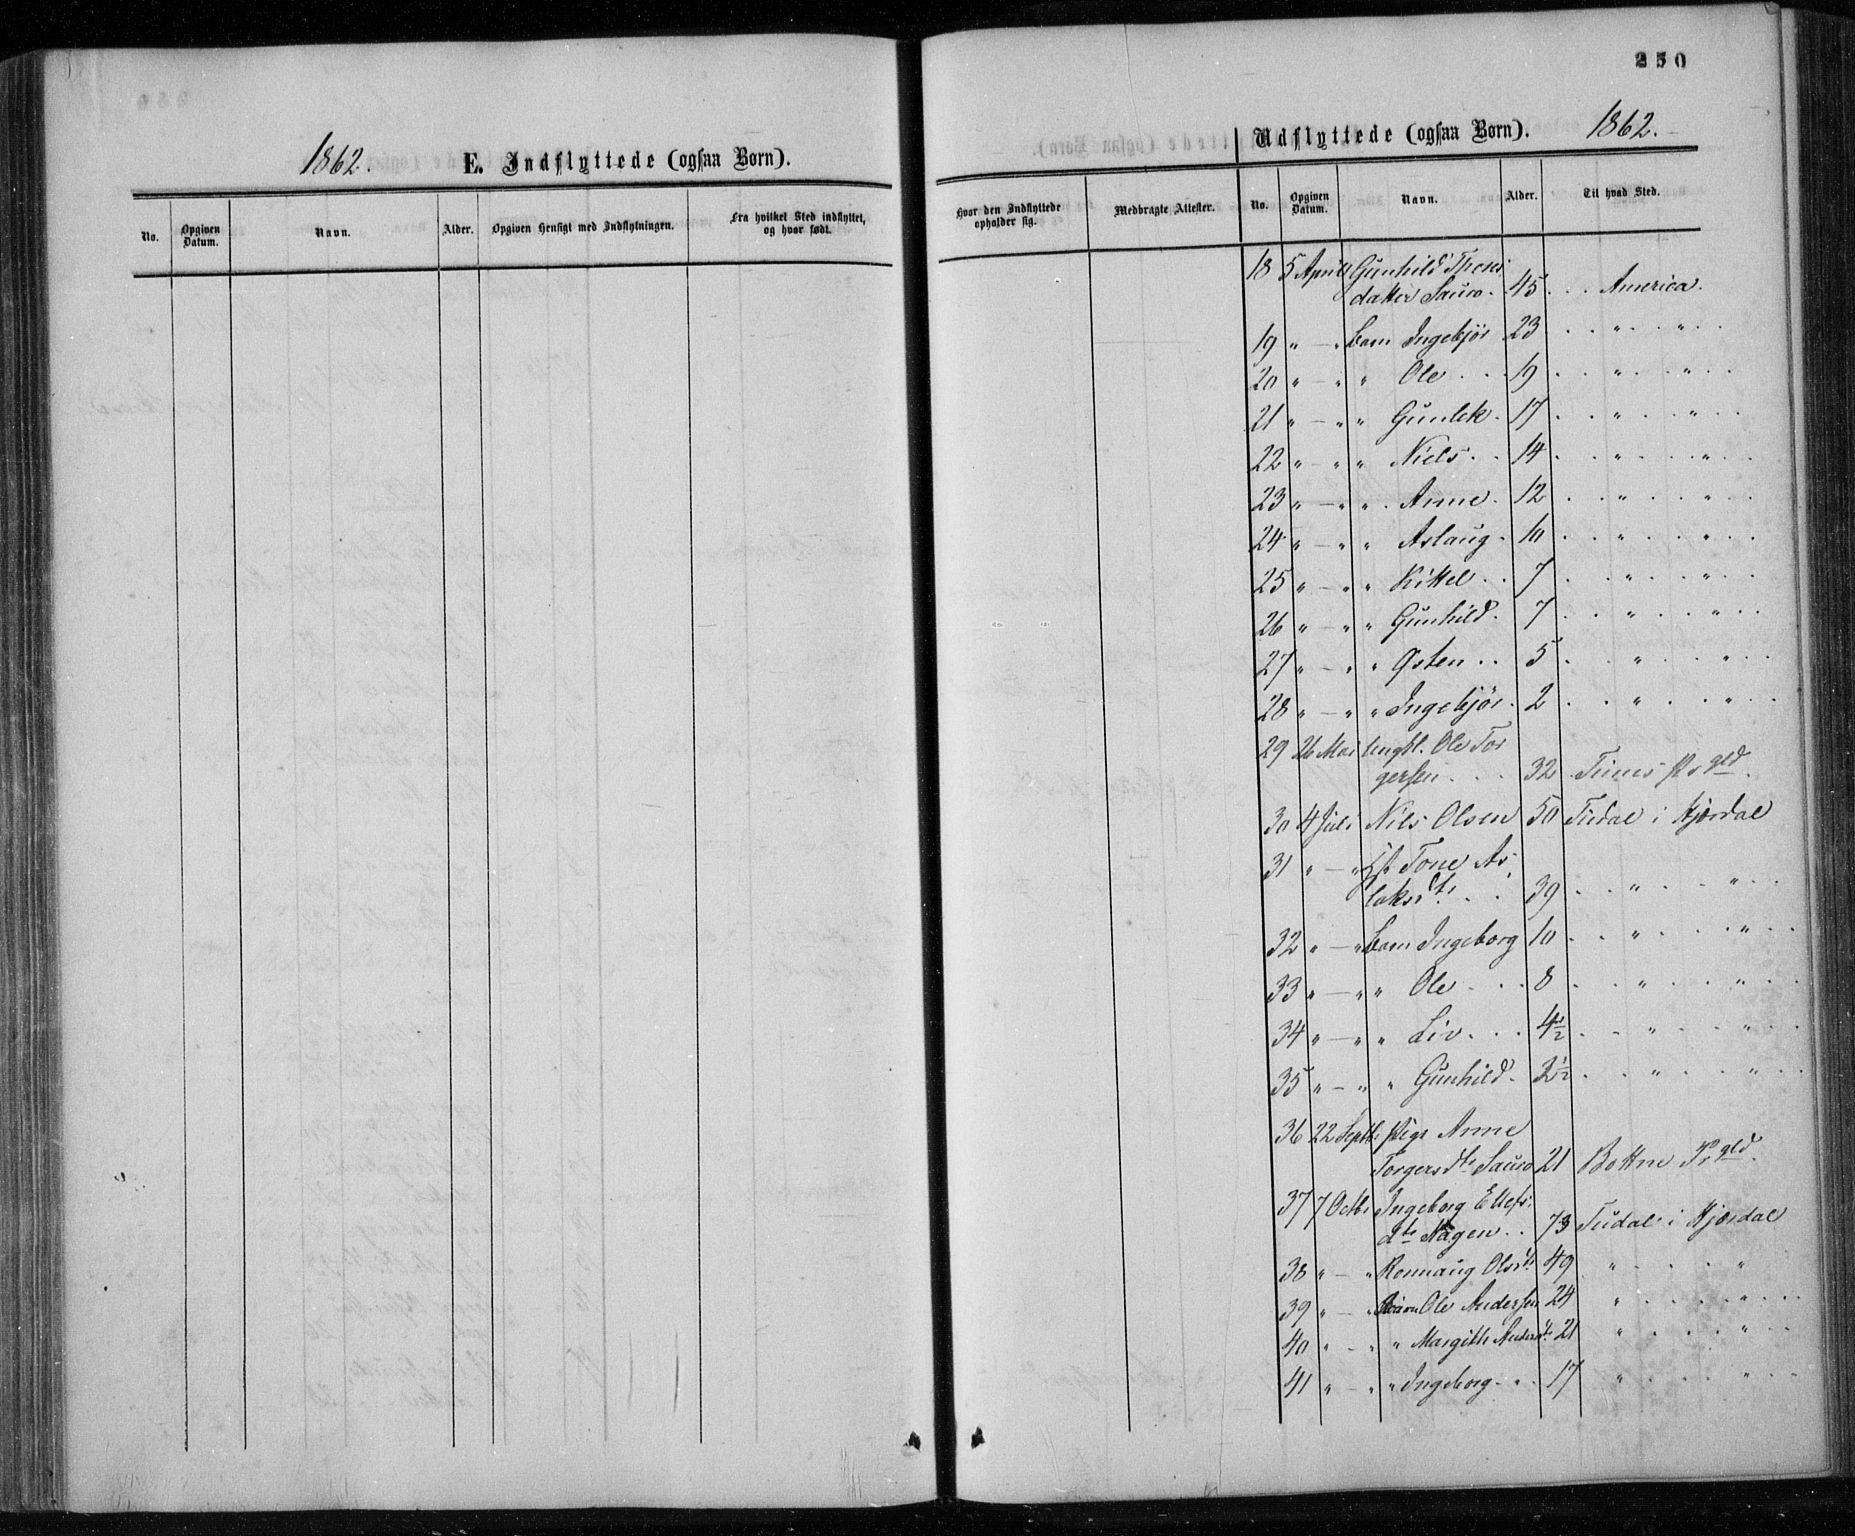 1862.
E. Indflyttede (ogsaa Børn).
No.
Opgiven Datum.
Navn.
Alder.
Opgiven Hensigt med Indflytningen.
Fra hvilket Sted indflyttet, og hvor født.
250
Udflyttede (ogsaa Børn). 1862.
Hvor den Indflyttede opholder sig.
Medbragte Attester.
No.
Opgiven Datum.
Navn.
Alder.
Til hvad Sted.
18 5 April Gunhild Thores
datter Sauro. 45 . . America.
19 " — " barn Ingebjør 23 . . " . . " . .
20 " — " " Ole . . . 19 . . " . . " . .
21 " — " " Gunlek . 17 . . " . . " . .
22 " — " " Niels . . 14 . . " . . " . .
23 " — " " . Anne . 12 . . " . . " . .
24 " — " " Aslaug . 10 . . " . . " . .
25 " — " " Kittel . . 7 . . " . . " . .
26 " — " " Gunhild . 7 . . " . . " . .
27 " — " " Østen . . 5 . . " . . " . .
28 " — " " Ingebjør . 2 . . " . . " . .
29 26 Mai Ungkl. Ole Tor
gersen . . . 32 Prgld.
30 4 Juli Nils Olsen 50 Tudal i Hjerdal
31 " — " Tone As
laksdtr . . . 39 . . " . . " . .
32 " — " barn Ingeborg 10 . . " . . " . .
33 " — " " Ole . . . 8 . . " . . " . .
34 " — " " Liv . . . 4½ . . " . . " . .
35 " — " " Gunhild . 2½ . . " . . " . .
36 22 Septbr Pige Anne
Torgersdtr Sauro 21 Botne Prgld.
37 7 Octbr Ingeborg Ellefs
dtr Hagen . . 73 Tudal i Hjerdal
38 " — " Ronnaug Olsdtr 49 " . . . "
39 " — " Barn Ole Andersen 24 " . . . " . .
40 " — " " Margith Andersdtr 21 " . . . " . .
41 " — " " Ingeborg . . . 17 " . . . " . .